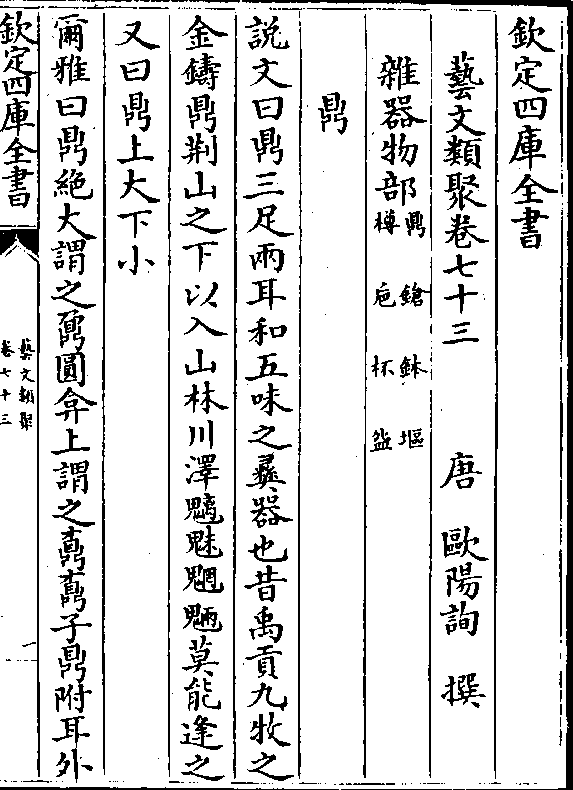 欽定四庫全書
藝文類聚卷七十三 唐 歐陽詢 撰
雜器物部 鼎 鎗 鉢 塸
樽 卮 杯 盌
鼎
說文曰鼎三足兩耳和五味之彞器也昔禹貢九牧之
金鑄鼎荆山之下以入山林川澤魑魅魍魎莫能逢之
又曰鼎上大下小
爾雅曰鼎絶大謂之鼐圓弇上謂之鼒鼒子鼎附耳外
欽定四庫全書
藝文類聚
卷七十三